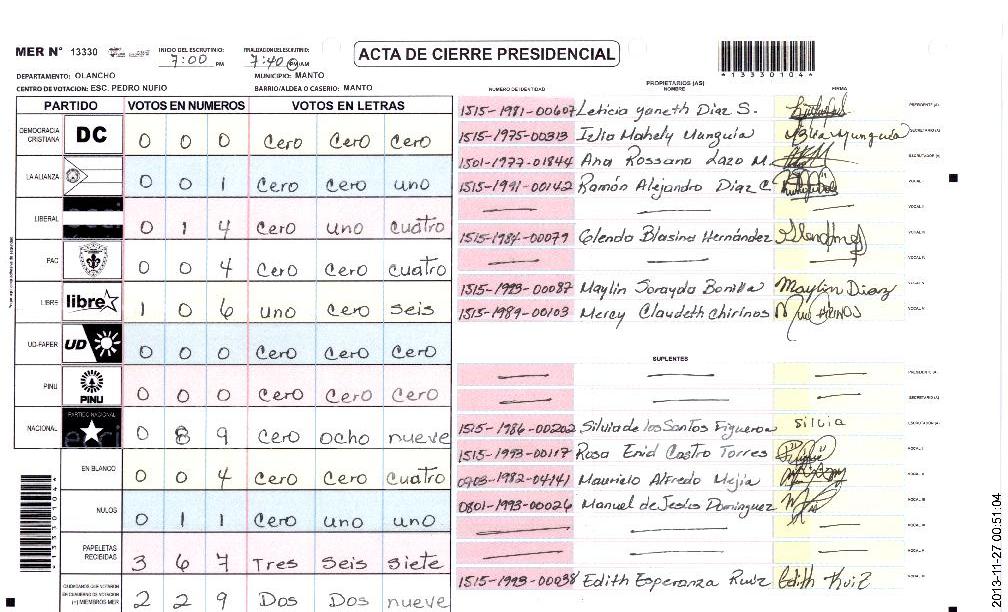 MER N° 13330 INICIO DEL ESCRUTINIO: 7:00 PM FINALIZACION DEL ESCRUTINIO: 7:40 PM/AM ACTA DE CIERRE PRESIDENCIAL *13330104*
DEPARTAMENTO: OLANCHO MUNICIPIO: MANTO
CENTRO DE VOTACION: ESC. PEDRO NUFIO BARRIO/ALDEA O CASERIO: MANTO
PROPIETARIOS (AS)
NUMERO DE IDENTIDAD NOMBRE FIRMA
PARTIDO VOTOS EN NUMEROS VOTOS EN LETRAS
DEMOCRACIA CRISTIANA DC 0 0 0 Cero Cero Cero
LA ALIANZA 0 0 1 Cero Cero uno
LIBERAL 0 1 4 Cero uno cuatro
PAC 0 0 4 Cero Cero cuatro
LIBRE libre 1 0 6 uno Cero seis
UD-FAPER UD 0 0 0 Cero Cero Cero
PINU PINU 0 0 0 Cero Cero Cero
NACIONAL PARTIDO NACIONAL 0 8 9 Cero ocho nueve
EN BLANCO 0 0 4 Cero Cero Cuatro
NULOS 0 1 1 Cero uno uno
PAPELETAS RECIBIDAS 3 6 7 Tres Seis siete
CIUDADANOS QUE VOTARON EN CUADERNO DE VOTACION (+) MIEMBROS MER 2 2 9 Dos Dos nueve
1515-1981-00607 Leticia Yaneth Diaz S. PRESIDENTE (A)
1515-1975-00313 Izlia Mahely Munguia Izlia Munguia SECRETARIO (A)
1501-1977-01844 Ana Rossana Lazo M. ESCRUTADOR (A)
1515-1991-00142 Ramón Alejandro Diaz C. VOCAL I
VOCAL II
1515-1984-00079 Glenda Blasina Hernández VOCAL III
1515-1993-00087 Maylin Sorayda Bonilla Maylin Diaz
1515-1989-00103 Mercy Claudeth Chirinos
SUPLENTES
PRESIDENTE (A)
SECRETARIO (A)
1515-1986-00202 Silvia de los Santos Figueroa silvia ESCRUTADOR (A)
1515-1993-00117 Rosa Enid Castro Torres VOCAL I
0903-1982-04141 Mauricio Alfredo Mejia VOCAL II
0801-1993-00026 Manuel de Jesús Dominguez VOCAL III
1515-1993-00038 Edith Esperanza Ruiz Edith Ruiz
*13330104*
2013-11-27 00:51:04